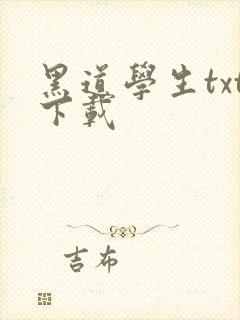 黑道學生txt
下載
吉布